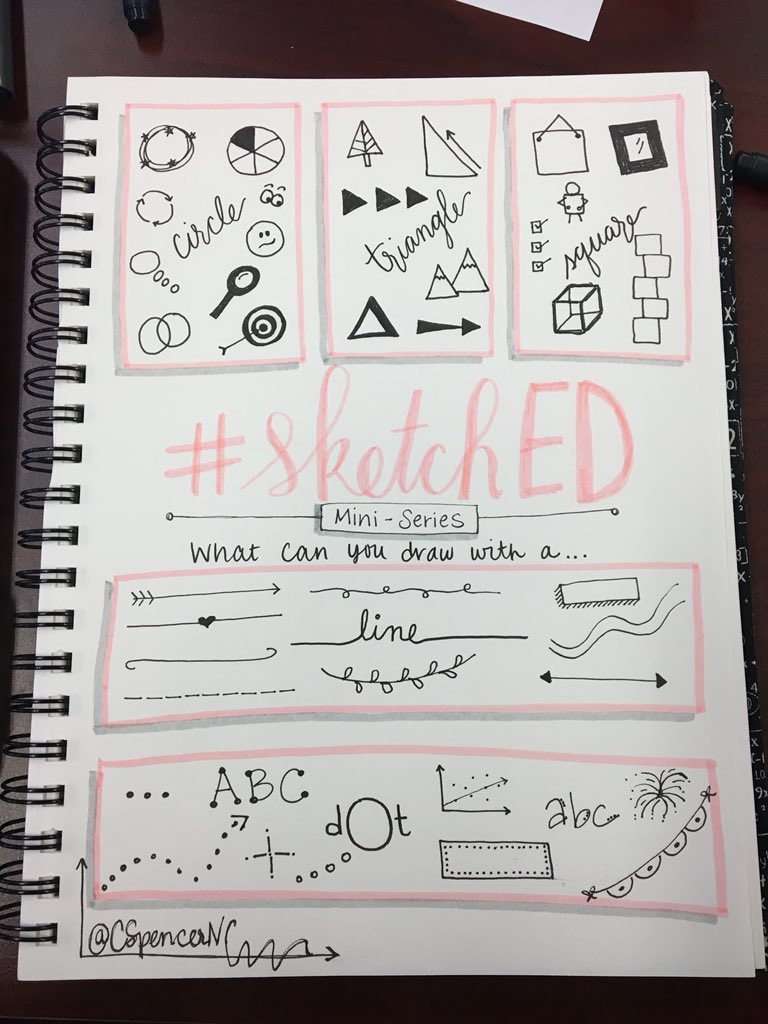 circle
triangle
square
#sketchED
Mini-Series
What can you draw with a...
line
ABC
dOt
abc
@CSpencerNC